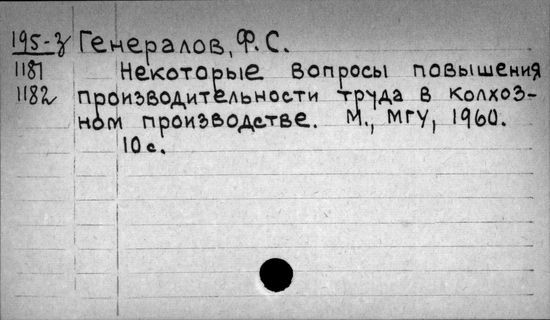 195-з Генералов, Ф.С.
1181 Некоторые вопросы повышения
1182 производительности труда в колхоз-
ном производстве. М., МГУ, 1960.
10 с.